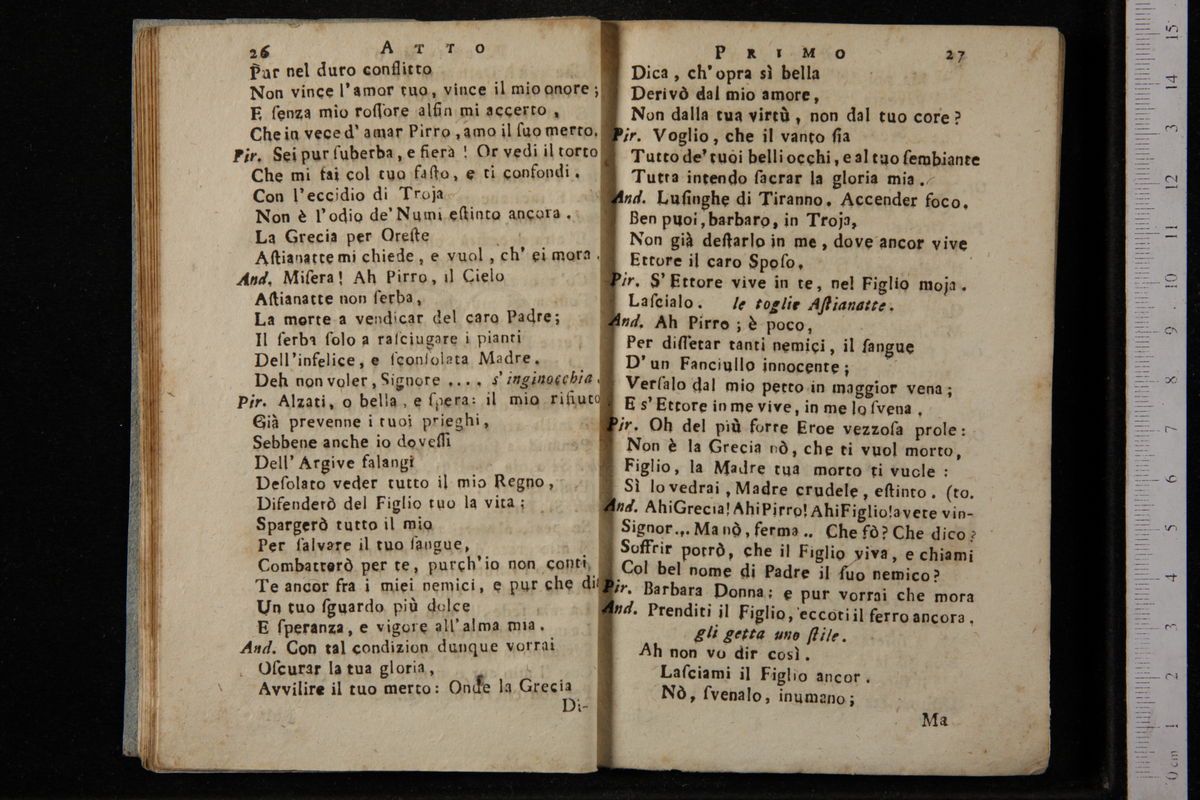 26 ATTO
Pur nel duro conflitto
Non vince l'amor tuo, vince il mio onore;
E ſenza mio roſſore alfin mi accerto,
Che in vece d'amar Pirro, amo il ſuo merto.
Pir. Sei pur ſuberba, e fiera! Or vedi il torto
Che mi fai col tuo faſto, e ti confondi.
Con l'eccidio di Troja
Non è l'odio de' Numi eſtinto ancora.
La Grecia per Oreſte
Aſtianatte mi chiede, e vuol, ch'ei mora.
And. Miſera! Ah Pirro, il Cielo
Aſtianatte non ſerba,
La morte a vendicar del caro Padre;
Il ſerba ſolo a raſciugare i pianti
Dell'infelice, e ſconſolata Madre.
Deh non voler, Signore .... s'inginocchia.
Pir. Alzati, o bella, e ſpera: il mio rifiuto
Già prevenne i tuoi prieghi,
Sebbene anche io doveſſi
Dell'Argive falangi
Deſolato veder tutto il mio Regno,
Difenderò del Figlio tuo la vita;
Spargerò tutto il mio
Per ſalvare il tuo ſangue,
Combatterò per te, purch'io non conti
Te ancor fra i miei nemici, e pur che di
Un tuo ſguardo più dolce
E ſperanza, e vigore all'alma mia.
And. Con tal condizion dunque vorrai
Oſcurar la tua gloria,
Avvilire il tuo merto: Onde la Grecia
Di-
PRIMO 27
Dica, ch'opra sì bella
Derivò dal mio amore,
Non dalla tua virtù, non dal tuo core?
Pir. Voglio, che il vanto ſia
Tutto de' tuoi belli occhi, e al tuo ſembiante
Tutta intendo ſacrar la gloria mia.
And. Luſinghe di Tiranno. Accender foco.
Ben puoi, barbaro, in Troja,
Non già deſtarlo in me, dove ancor vive
Ettore il caro Spoſo.
Pir. S'Ettore vive in te, nel Figlio moja.
Laſcialo. le toglie Aſtianatte.
And. Ah Pirro; è poco,
Per diſſetar tanti nemici, il ſangue
D'un Fanciullo innocente;
Verſalo dal mio petto in maggior vena;
E s'Ettore in me vive, in me lo ſvena.
Pir. Oh del più forte Eroe vezzoſa prole:
Non è la Grecia nò, che ti vuol morto,
Figlio, la Madre tua morto ti vuole:
Sì lo vedrai, Madre crudele, eſtinto. (to.
And. Ahi Grecia! Ahi Pirro! Ahi Figlio! avete vin-
Signor... Ma nò, ferma.. Che fò? Che dico?
Soffrir potrò, che il Figlio viva, e chiami
Col bel nome di Padre il ſuo nemico?
Pir. Barbara Donna; e pur vorrai che mora
And. Prenditi il Figlio, eccoti il ferro ancora.
gli getta uno ſtile.
Ah non vo dir così.
Laſciami il Figlio ancor.
Nò, ſvenalo, inumano;
Ma
15
14
13
12
11
10
9
8
7
6
5
4
3
2
1
0 cm